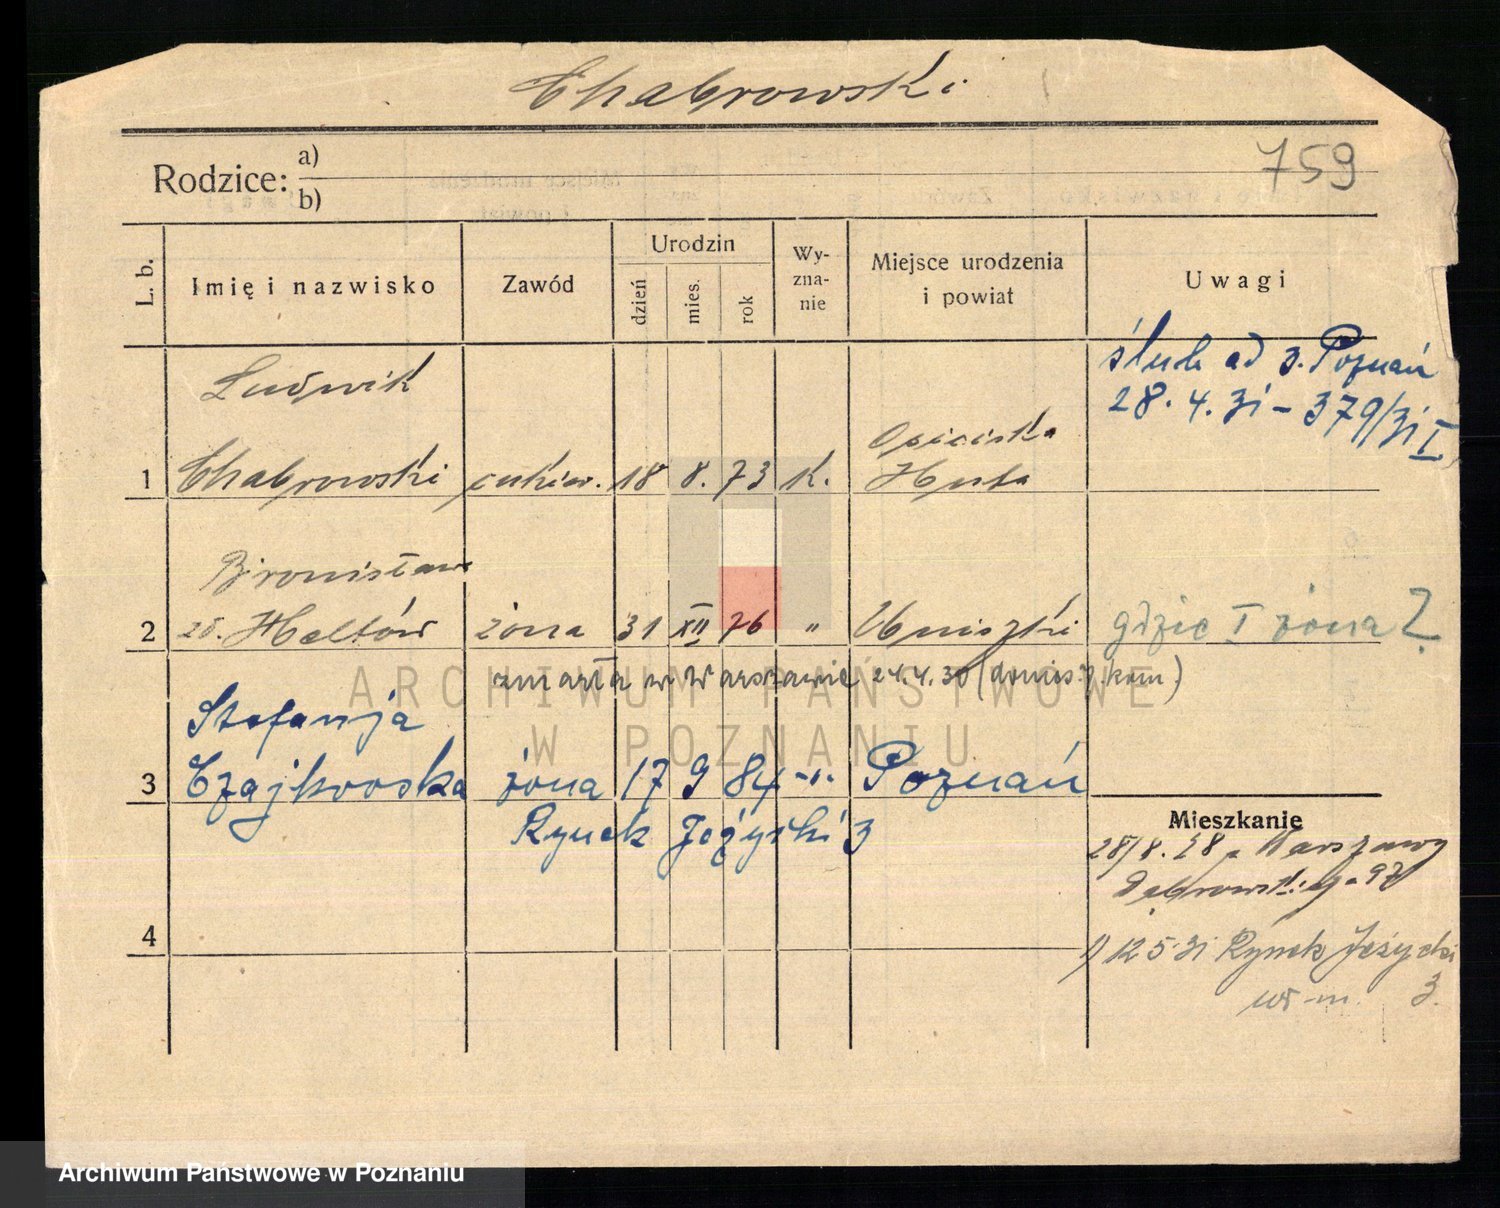 Chabrowski
759
Rodzice: a)
b)
L. b.
Imię i nazwisko
Zawód
Urodzin
dzień
mies.
rok
Wy-
zna-
nie
Miejsce urodzenia
i powiat
Uwagi
ślub ad 3. Poznań
28. 4. 31 - 379/31 I
Ludwik
1 Chabrowski cukier. 18 8. 73 k. Huta
Bronisława
2 Heltów żona 31 XII 76 " Uniszki
gdzie I żona?
zmarła w Warszawie 24.4.30 (donies. 7. kom.)
Stefanja
3 Czajkowska żona 17 9 84 -"- Poznań
Rynek Jeżycki 3
Mieszkanie
28/8. 28 z Warszawy
Dąbrowskiego 97
4
1) 12 5 31 Rynek Jeżycki
3.
ARCHIWUM PAŃSTWOWE
W POZNANIU
Archiwum Państwowe w Poznaniu